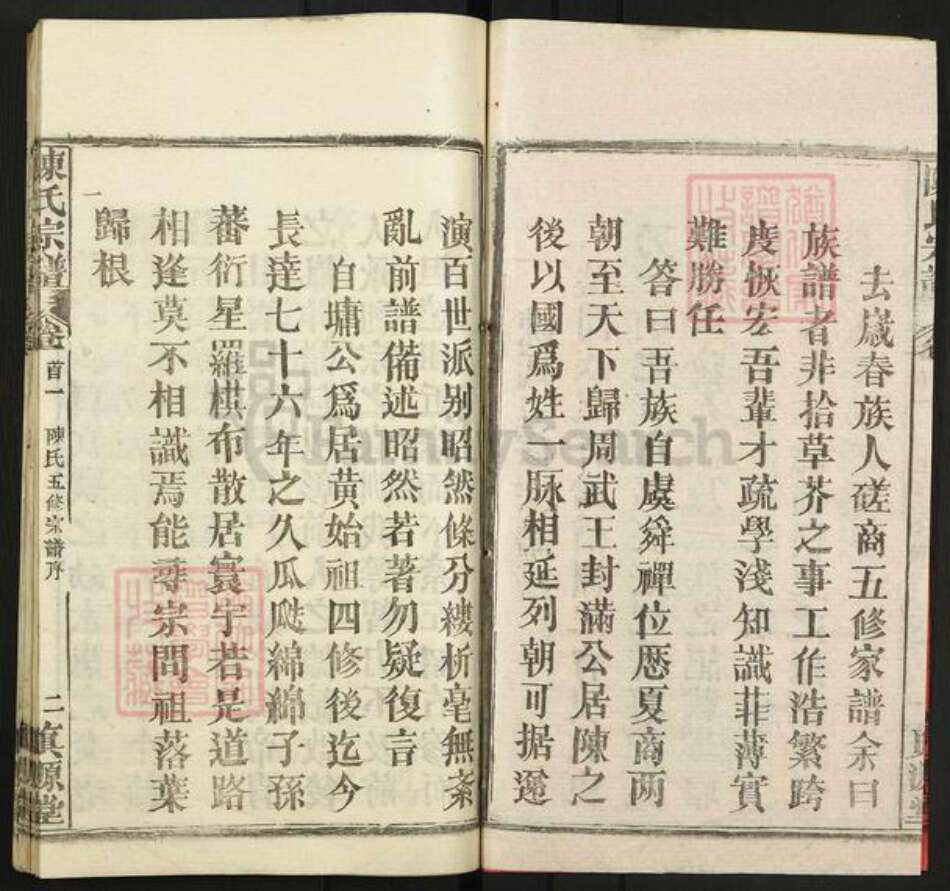 去嵗春族人磋商五修家譜余曰
族譜者非拾草芥之事工作浩繁跨
度恢宏吾輩才疏學淺知識菲薄實
難勝任
答曰吾族自虞舜禪位厯夏商两
朝至天下歸周武王封滿公居陳之
後以國爲姓一脉相延列朝可据遞
演百世派别昭然條分縷析毫無紊
亂前譜備述昭然若著勿疑復言
自墉公爲居黃始祖四修後迄今
長達七十六年之久瓜瓞綿綿子孫
蕃衍星羅棋布散居寰宇若是道路
相逢莫不相識焉能尋宗問祖落葉
歸根
陳氏宗譜
卷首一
陳氏五修宗譜序
二
真源堂
FamilySearch